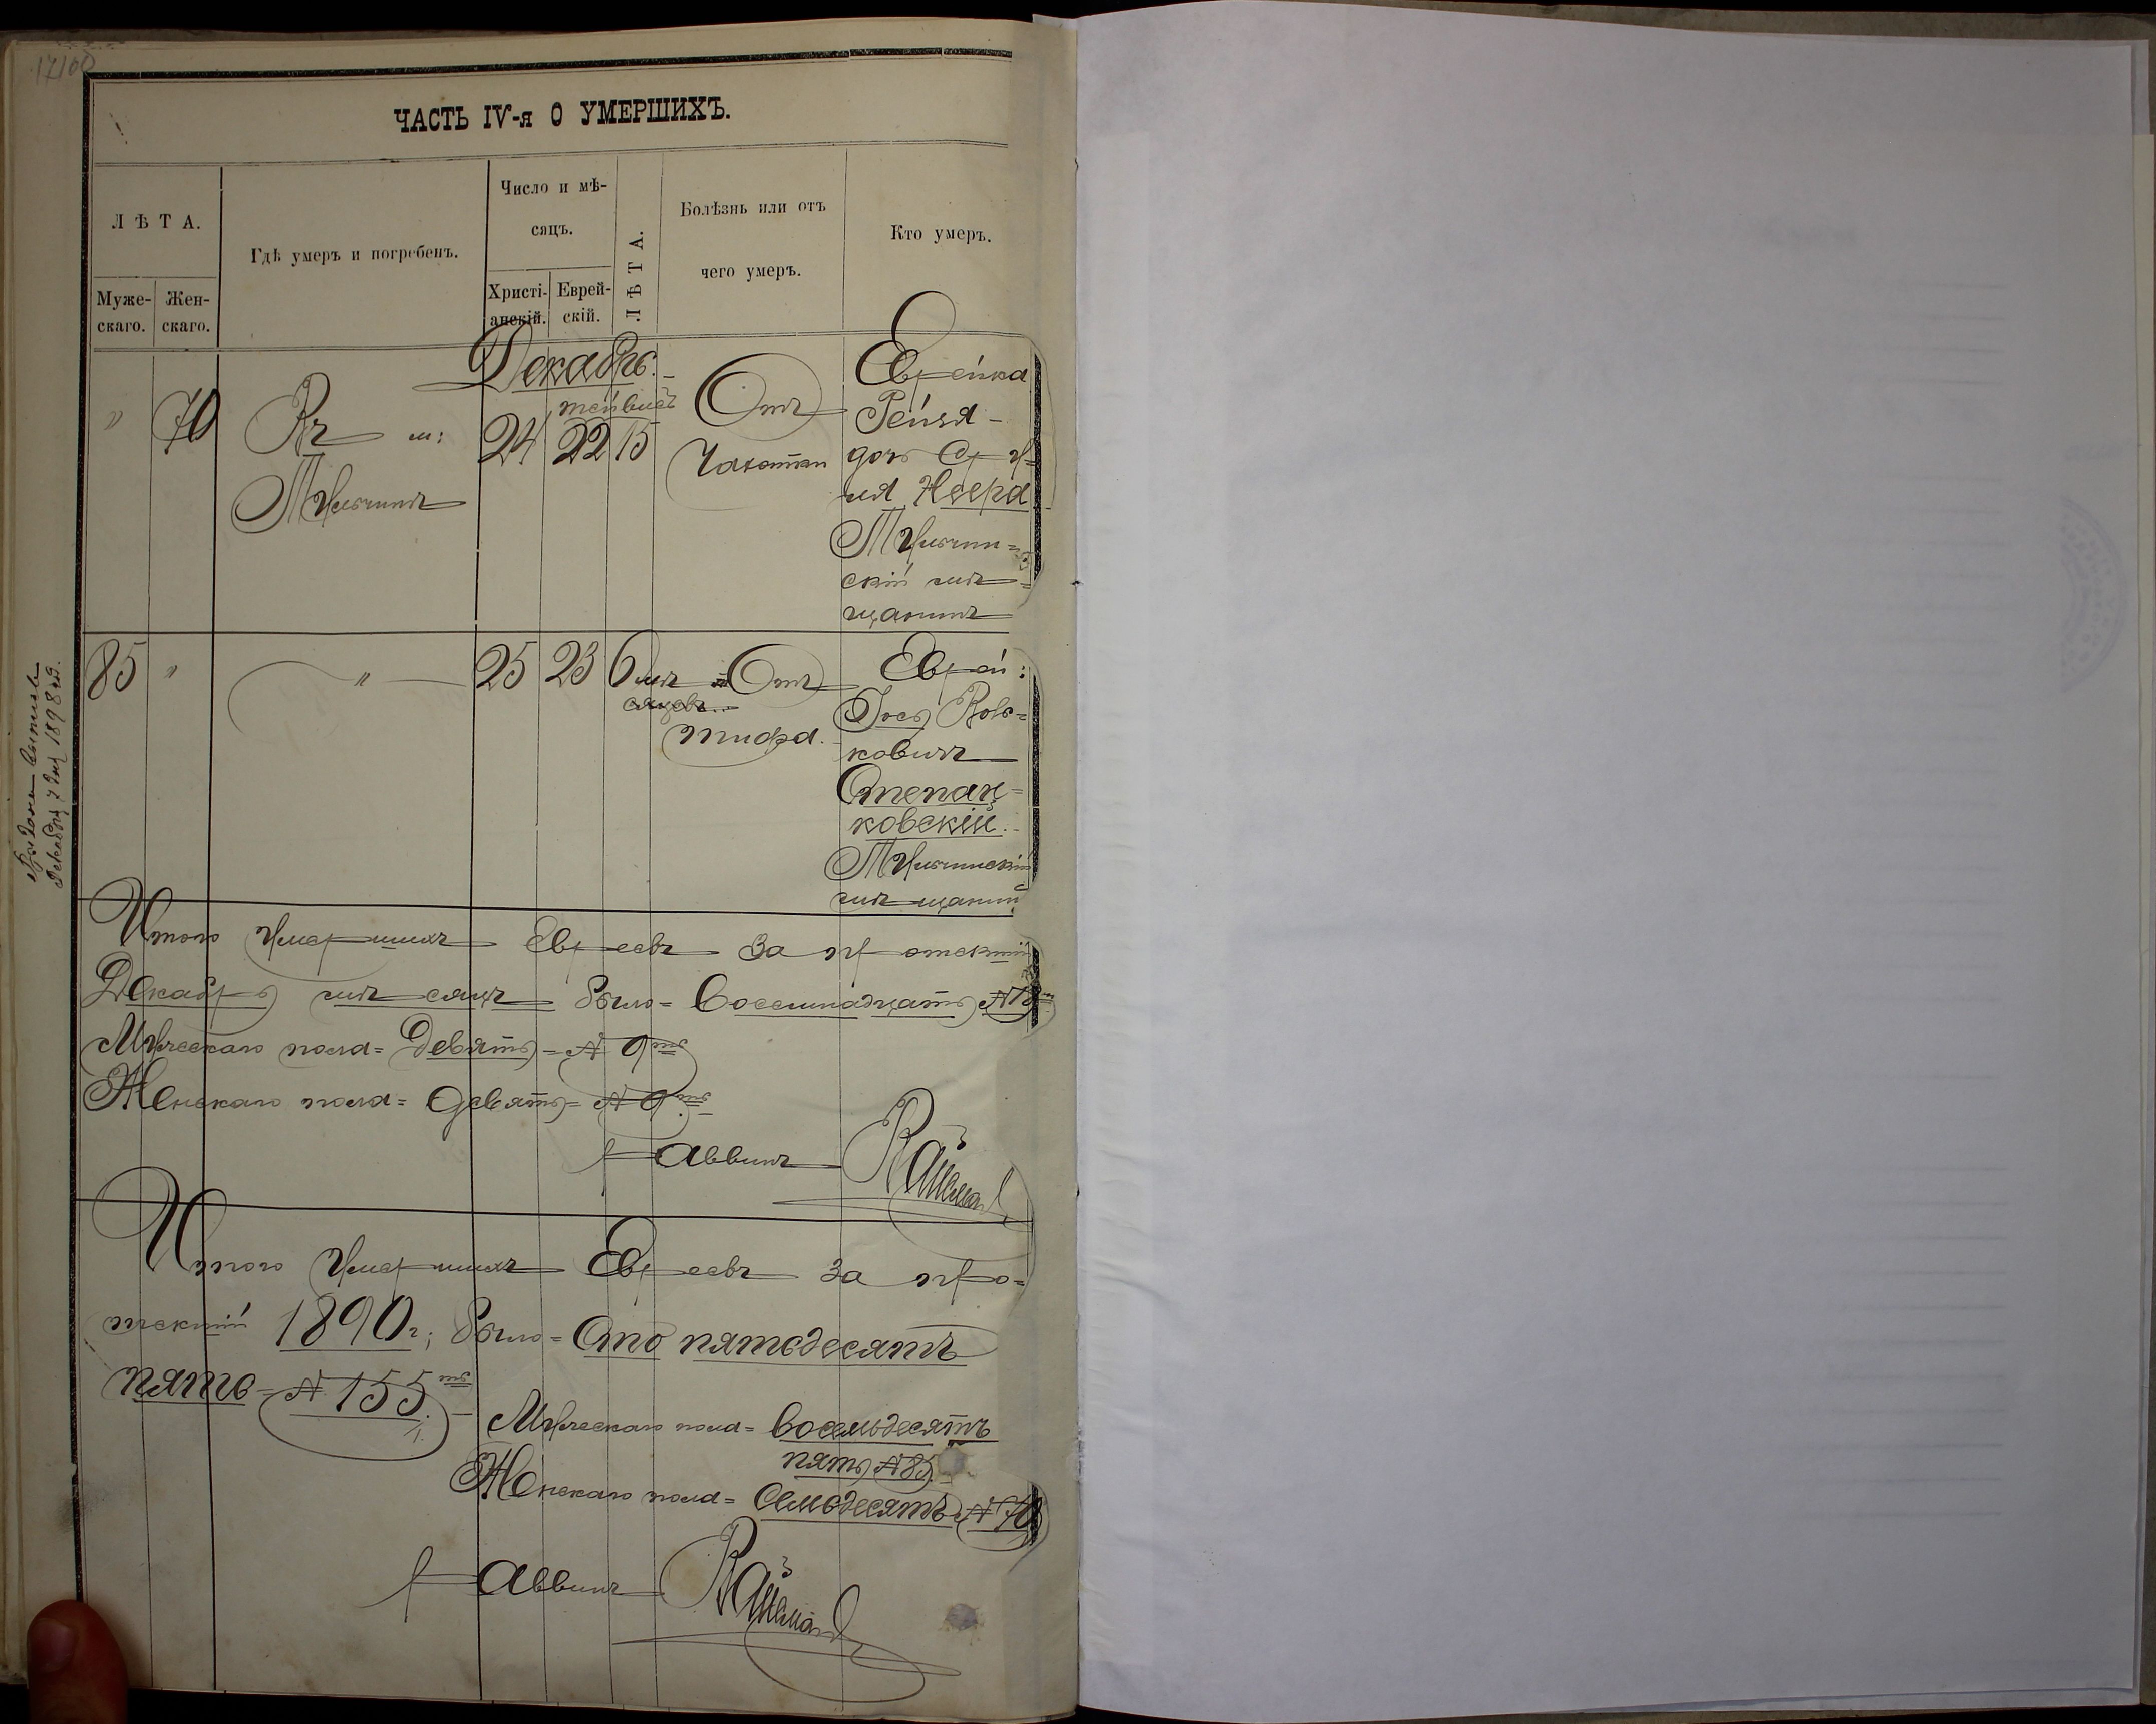 ЧАСТЬ IV-я О УМЕРШИХЪ.
ЛѢТА.
Муже-
скаго.
Жен-
скаго.
Гдѣ умеръ и погребенъ.
Число и мѣ-
сяцъ.
Христі-
анскій.
Еврей-
скій.
ЛѢТА.
Болѣзнь или отъ
чего умеръ.
Кто умеръ.
Декабрь.
" 70
Въ м:
Тульчинѣ
24
тейвисъ
22
15
Отъ
Чахотки
Еврейка
Рейзя -
дочь
Тульчин=
скій мѣ=
щанинъ
85 "
"
25 23
6 мѣ
сяцовъ..
Отъ
тифа.
Еврей:
Іось Вольк=
ковичъ
Степанк=
ковскій.
Тульчинскій
мѣщанинъ
Итого Умершихъ Евреевъ за протекшій
Декабрь мѣсяцъ было= Восемнадцать №18
Мужескаго пола= Девять= № 9ть
Женскаго пола= Девять= № 9ть
раввинъ
Итого Умершихъ Евреевъ за про=
текшій 1890г; было= Сто пятьдесятъ
пять= № 155.ть
Мужескаго пола= восемьдесятъ
пять №85.
Женскаго пола= Семьдесятъ №70
раввинъ
Декабря 7 дня 1898 г.